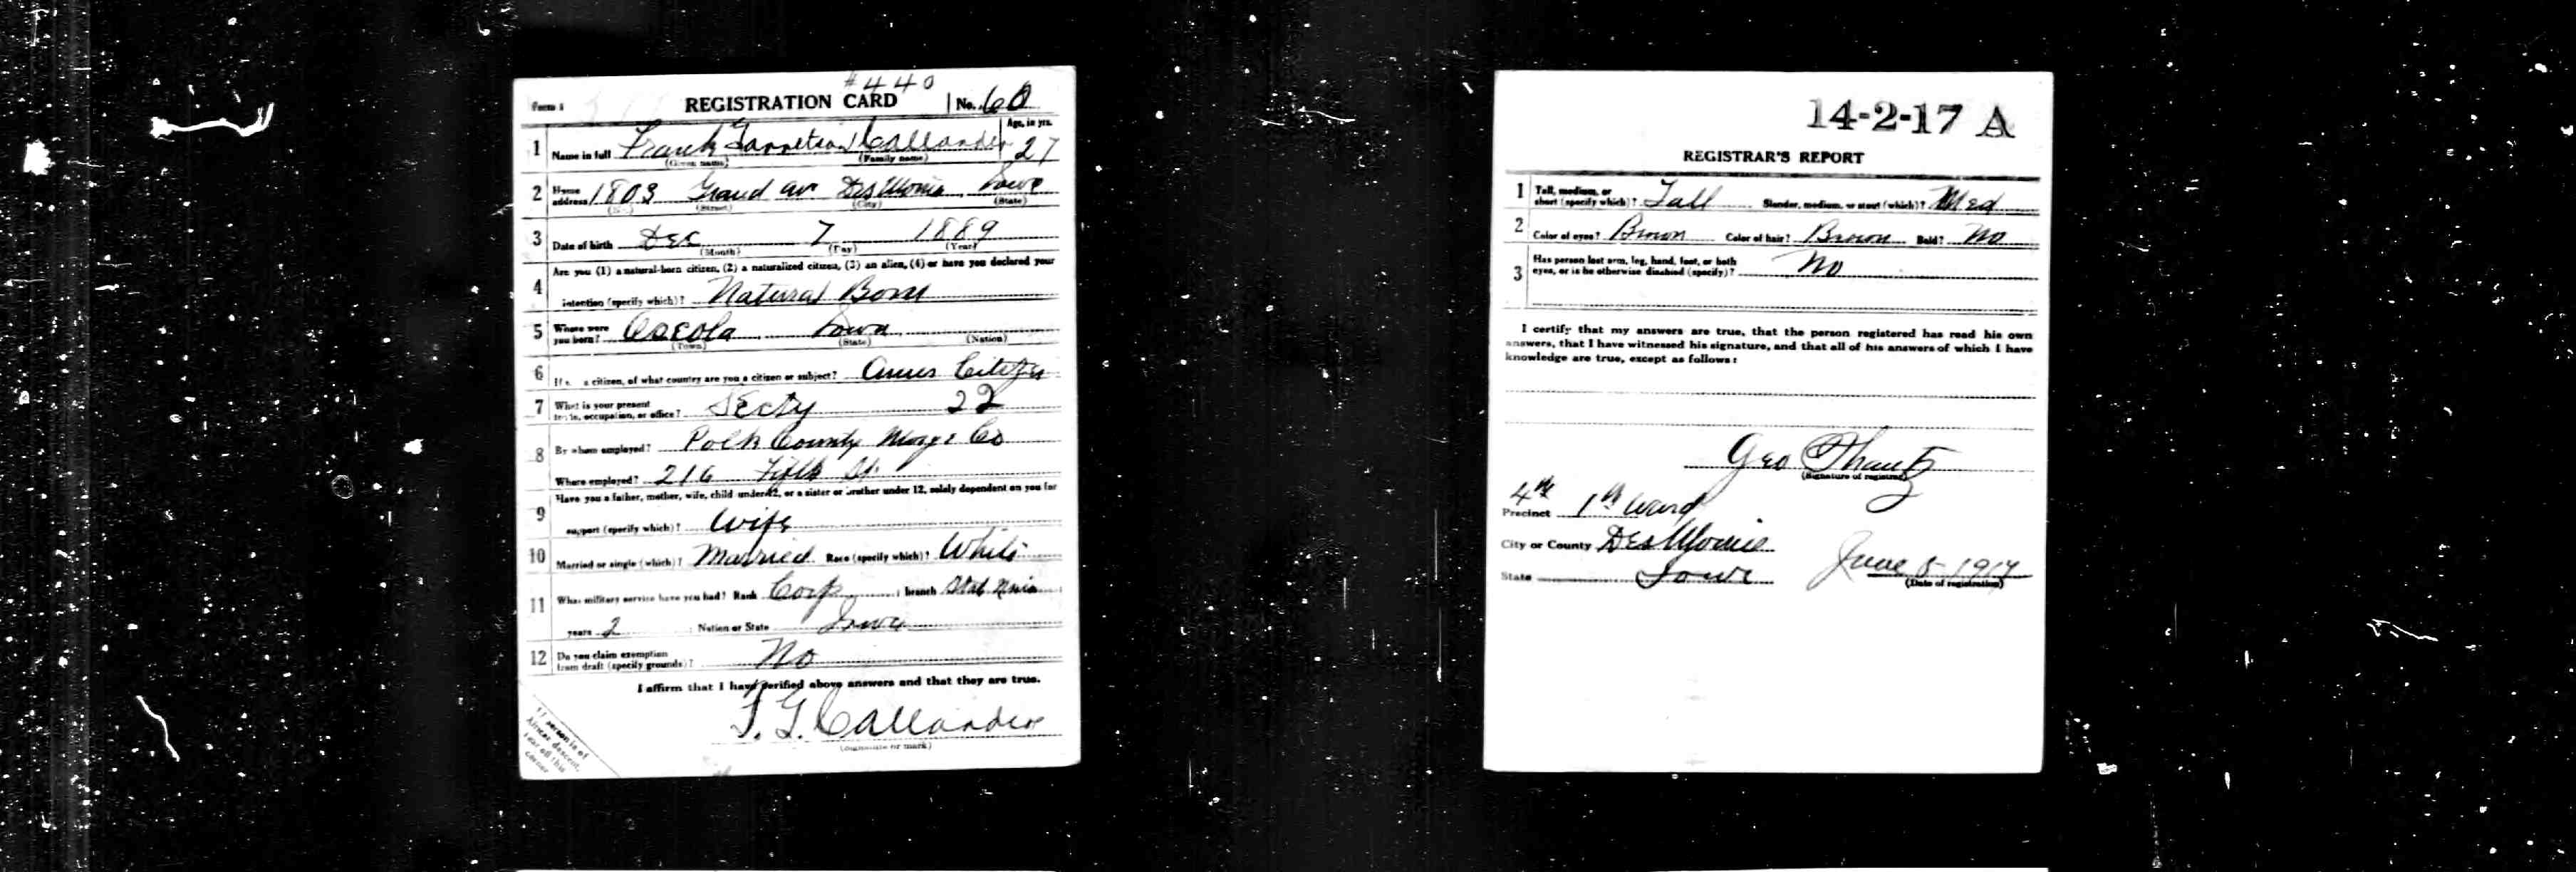 #440
Form 1 REGISTRATION CARD No. 60
1 Name in full Frank Garretson Callander Age, in yrs. 27
(Given name) (Family name)
2 Home address 1803 Grand av Des Moines Iowa
(No.) (Street) (City) (State)
3 Date of birth Dec 7 1889
(Month) (Day) (Year)
Are you (1) a natural-born citizen, (2) a naturalized citizen, (3) an alien, (4) or have you declared your
4 intention (specify which)? Natural Born
5 Where were you born? Osceola Iowa
(Town) (State) (Nation)
6 If a citizen, of what country are you a citizen or subject? Citizen
7 What is your present trade, occupation, or office? Secty 22
8 By whom employed? Polk County Co
Where employed? 216 Fifth St.
9 Have you a father, mother, wife, child under 12, or a sister or brother under 12, solely dependent on you for
support (specify which)? Wife
10 Married or single (which)? Married Race (specify which)? White
11 What military service have you had? Rank Corp ; branch
years 2 ; Nation or State Iowa
12 Do you claim exemption from draft (specify grounds)? No
I affirm that I have verified above answers and that they are true.
F. G. Callander
(Signature or mark)
If person is of
African descent,
tear off this
corner
14-2-17 A
REGISTRAR'S REPORT
1 Tall, medium, or short (specify which)? Tall Slender, medium, or stout (which)? Med
2 Color of eyes? Brown Color of hair? Brown Bald? No
3 Has person lost arm, leg, hand, foot, or both eyes, or is he otherwise disabled (specify)? No
I certify that my answers are true, that the person registered has read his own
answers, that I have witnessed his signature, and that all of his answers of which I have
knowledge are true, except as follows:
Geo
(Signature of registrar)
4th
Precinct 1th Ward
City or County Des Moines
State Iowa June 5 1917
(Date of registration)